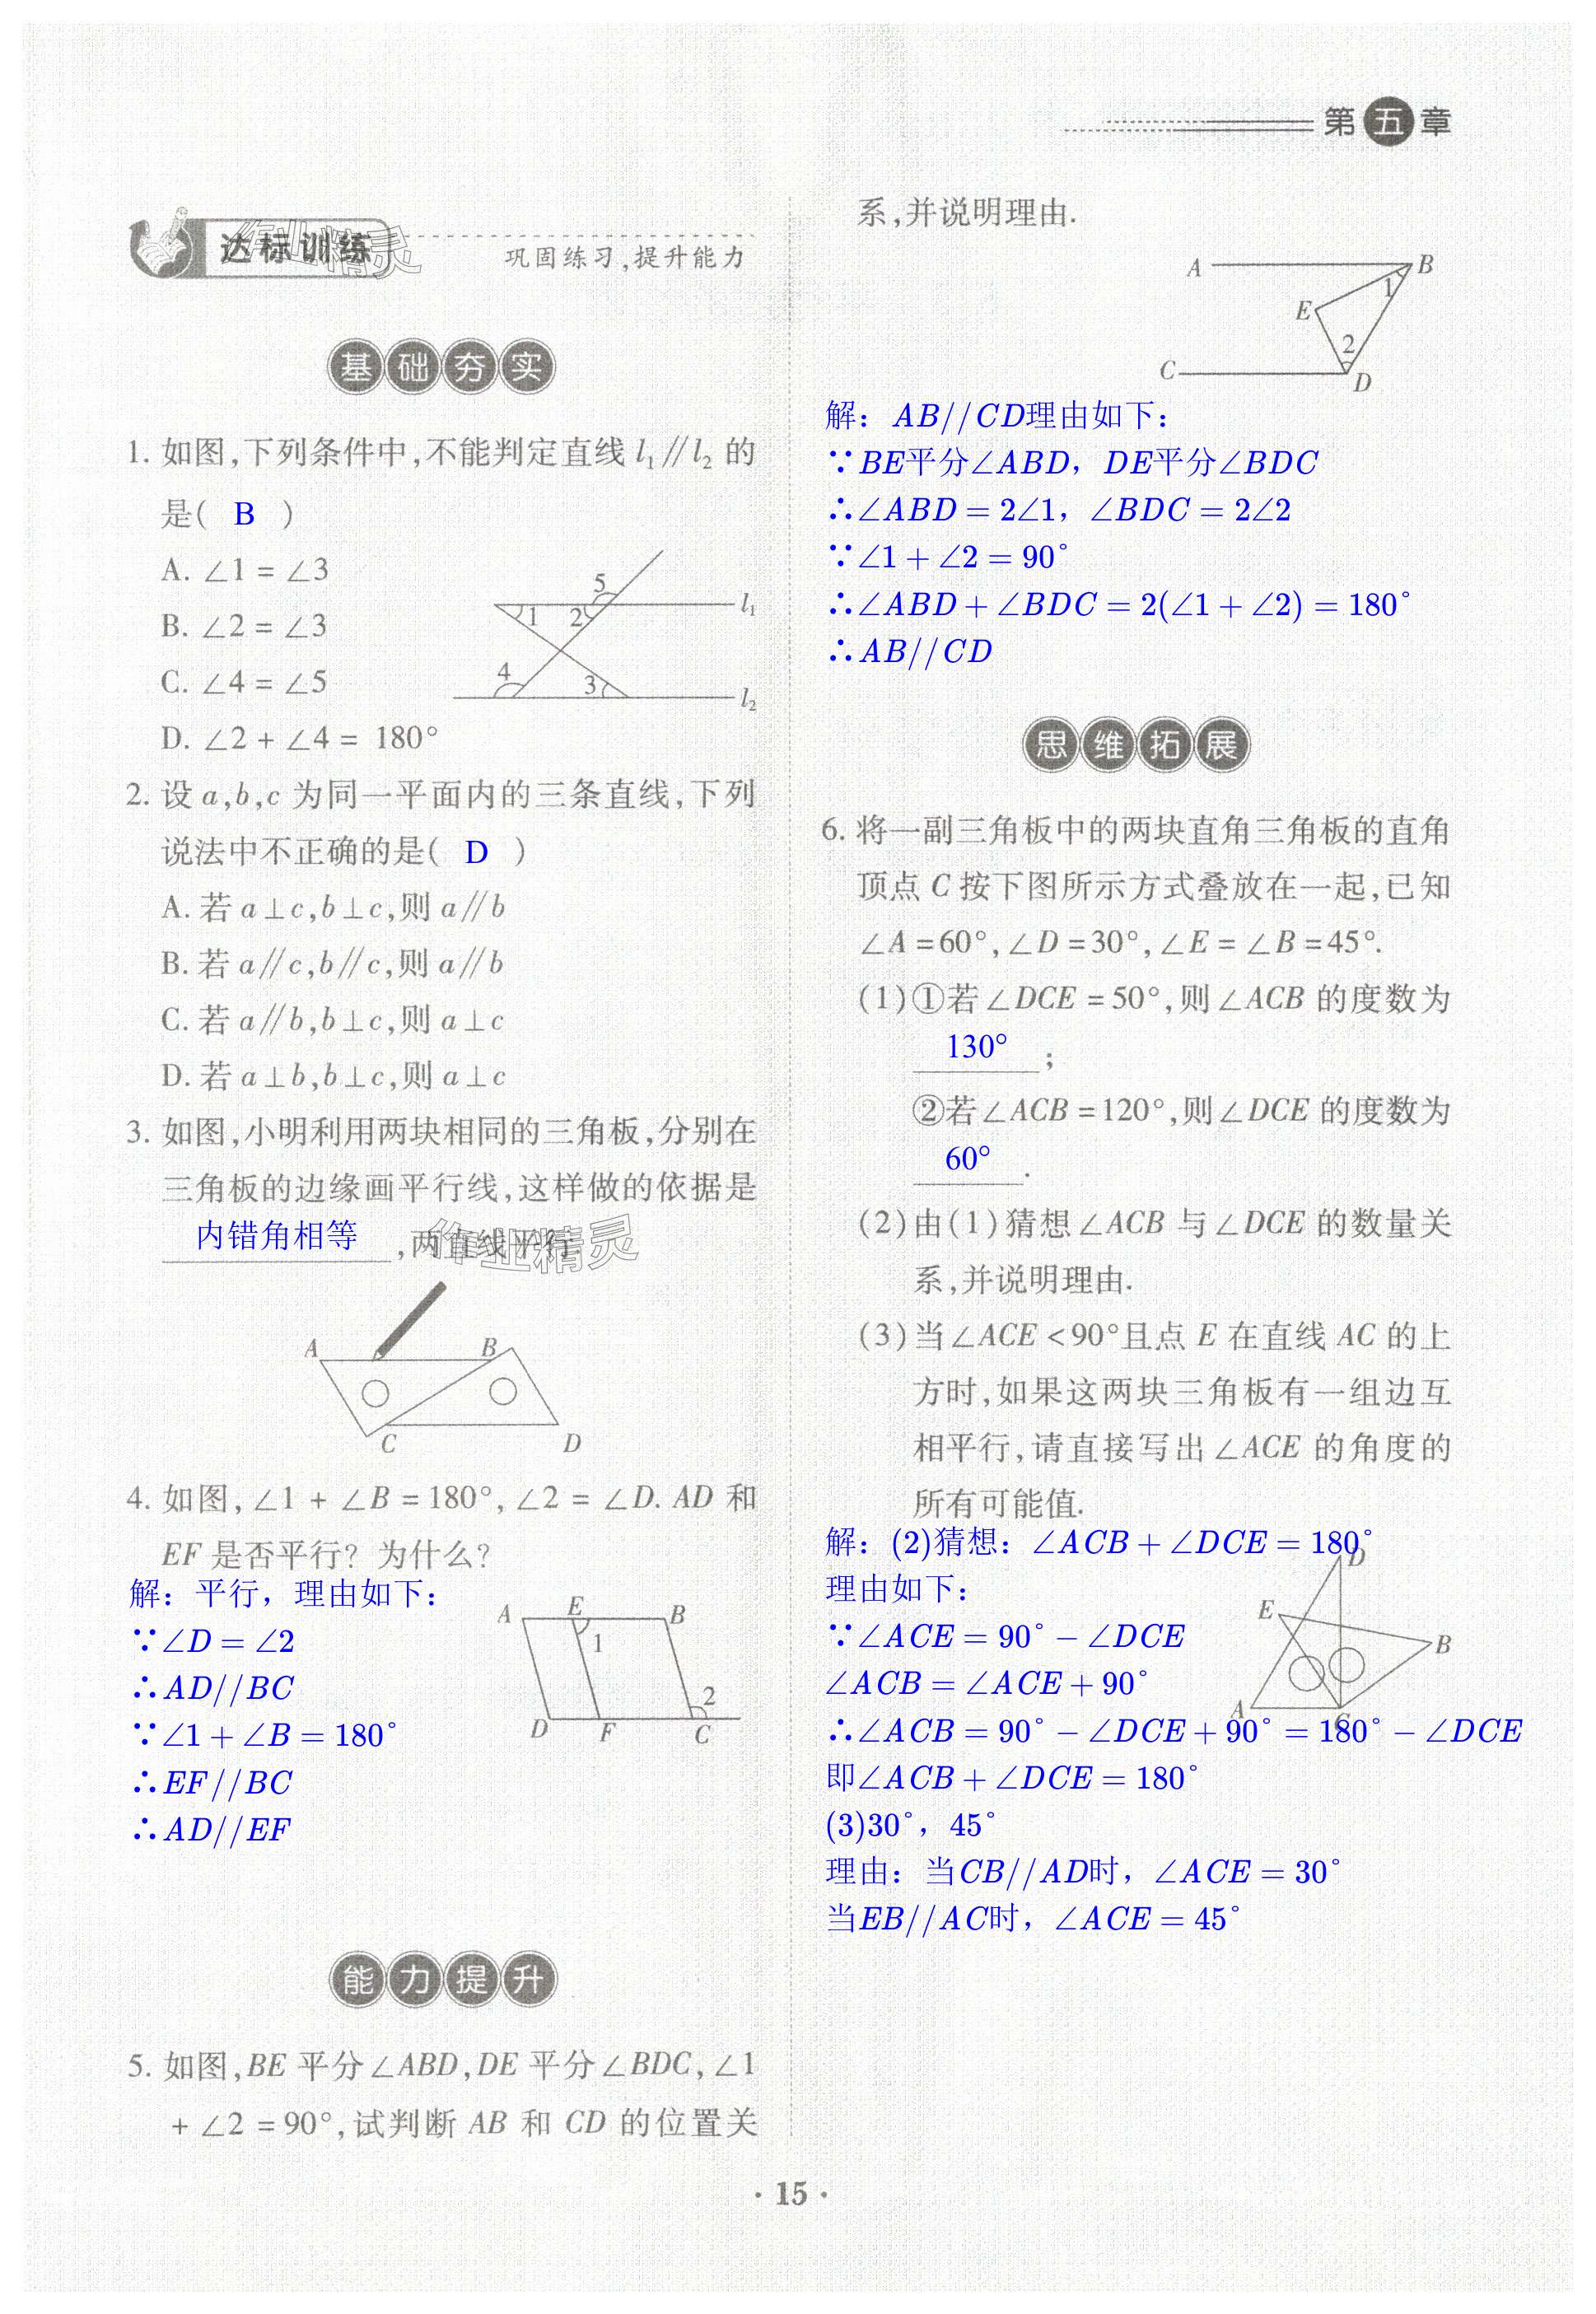 第五章
达标训练
巩固练习,提升能力
基础夯实
1. 如图,下列条件中,不能判定直线 l₁∥l₂ 的
是( B )
A. ∠1 = ∠3
B. ∠2 = ∠3
C. ∠4 = ∠5
D. ∠2 + ∠4 = 180°
5
1
2
l₁
4
3
l₂
2. 设 a,b,c 为同一平面内的三条直线,下列
说法中不正确的是( D )
A. 若 a⊥c,b⊥c,则 a∥b
B. 若 a∥c,b∥c,则 a∥b
C. 若 a∥b,b⊥c,则 a⊥c
D. 若 a⊥b,b⊥c,则 a⊥c
3. 如图,小明利用两块相同的三角板,分别在
三角板的边缘画平行线,这样做的依据是
内错角相等,两直线平行.
作业精灵
A
B
C
D
4. 如图, ∠1 + ∠B = 180°, ∠2 = ∠D. AD 和
EF 是否平行? 为什么?
解：平行，理由如下：
∵∠D = ∠2
∴AD//BC
∵∠1 + ∠B = 180°
∴EF//BC
∴AD//EF
A E B
1
2
D F C
能力提升
5. 如图,BE 平分∠ABD,DE 平分∠BDC, ∠1
+ ∠2 = 90°,试判断 AB 和 CD 的位置关
系,并说明理由.
A
B
1
E
2
C
D
解：AB//CD理由如下：
∵BE平分∠ABD，DE平分∠BDC
∴∠ABD = 2∠1，∠BDC = 2∠2
∵∠1 + ∠2 = 90°
∴∠ABD + ∠BDC = 2(∠1 + ∠2) = 180°
∴AB//CD
思维拓展
6. 将一副三角板中的两块直角三角板的直角
顶点 C 按下图所示方式叠放在一起,已知
∠A = 60°, ∠D = 30°, ∠E = ∠B = 45°.
(1)①若∠DCE = 50°,则∠ACB 的度数为
130° ;
②若∠ACB = 120°,则∠DCE 的度数为
60° .
(2)由(1)猜想∠ACB 与∠DCE 的数量关
系,并说明理由.
(3)当∠ACE < 90°且点 E 在直线 AC 的上
方时,如果这两块三角板有一组边互
相平行,请直接写出∠ACE 的角度的
所有可能值.
解：(2)猜想：∠ACB + ∠DCE = 180°
理由如下：
∵∠ACE = 90° − ∠DCE
∠ACB = ∠ACE + 90°
∴∠ACB = 90° − ∠DCE + 90° = 180° − ∠DCE
即∠ACB + ∠DCE = 180°
(3)30°，45°
理由：当CB//AD时，∠ACE = 30°
当EB//AC时，∠ACE = 45°
D
E
B
A
C
· 15 ·